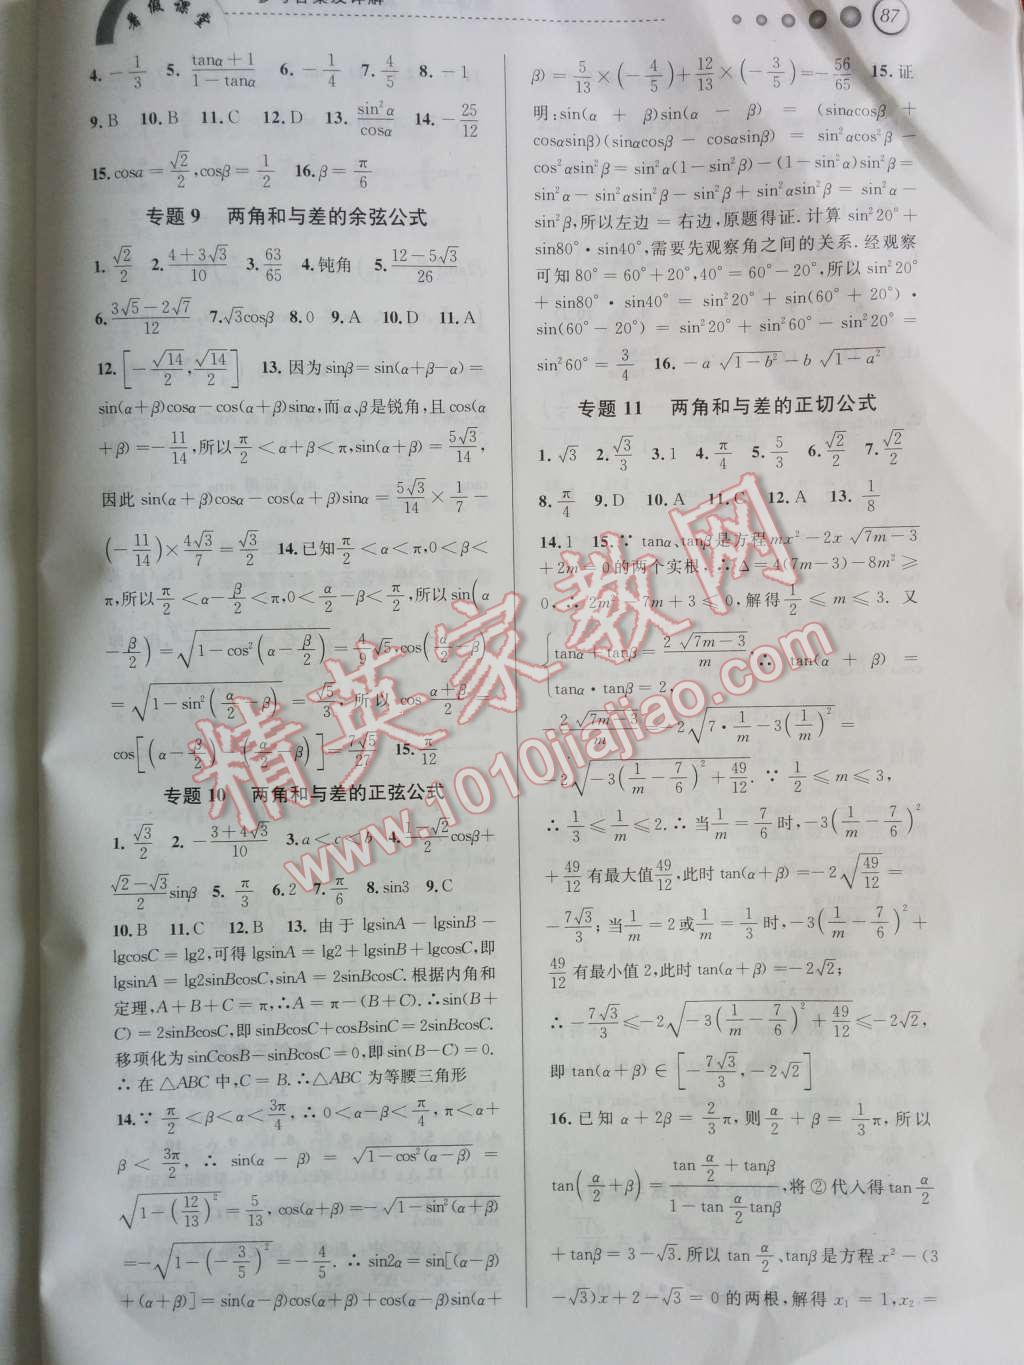 暑假课堂
参考答案及详解
87
4. -1/3 5. (tanα+1)/(1-tanα) 6. -1/4 7. 4/5 8. -1
9. B 10. B 11. C 12. D 13. sin²α/cosα 14. -25/12
15. cosα=√2/2, cosβ=1/2 16. β=π/6
专题 9 两角和与差的余弦公式
1. √2/2 2. (4+3√3)/10 3. 63/65 4. 钝角 5. (12-5√3)/26
6. (3√5-2√7)/12 7. √3cosβ 8. 0 9. A 10. D 11. A
12. [-√14/2, √14/2] 13. 因为 sinβ=sin(α+β-α)=
sin(α+β)cosα-cos(α+β)sinα,而 α、β 是锐角,且 cos(α
+β)=-11/14,所以 π/2<α+β<π,sin(α+β)=5√3/14,
因此 sin(α+β)cosα-cos(α+β)sinα=5√3/14×1/7-
(-11/14)×4√3/7=√3/2 14. 已知 π/2<α<π,0<β<
π,所以 π/2<α-β/2<π,0<α/2-β<π/2,所以 sin(α
-β/2)=√(1-cos²(α-β/2))=4/9√5,cos(α/2-β)
=√(1-sin²(α/2-β))=√5/3, 所以 cos (α+β)/2=
cos[(α-β/2)-(α/2-β)]=7√5/27 15. π/12
专题 10 两角和与差的正弦公式
1. √3/2 2. -(3+4√3)/10 3. a<c<b 4. (1-√2)/2 cosβ+
(√2-√3)/2 sinβ 5. π/3 6. 2 7. π/6 8. sin3 9. C
10. B 11. C 12. B 13. 由于 lgsinA-lgsinB-
lgcosC=lg2,可得 lgsinA=lg2+lgsinB+lgcosC,即
lgsinA=lg2sinBcosC,sinA=2sinBcosC.根据内角和
定理,A+B+C=π,∴A=π-(B+C).∴sin(B+
C)=2sinBcosC,即 sinBcosC+cosBsinC=2sinBcosC.
移项化为 sinCcosB-sinBcosC=0,即 sin(B-C)=0.
∴在△ABC 中,C=B.∴△ABC 为等腰三角形
14. ∵ π/2<β<α<3π/4,∴0<α-β<π/4,π<α+
β<3π/2, ∴ sin(α-β)=√(1-cos²(α-β))=
√(1-(12/13)²)=5/13, cos(α+β)=-√(1-sin²(α+β))
=-√(1-(-3/5)²)=-4/5. ∴sin2α=sin[(α-β)
+(α+β)]=sin(α-β)cos(α+β)+cos(α-β)sin(α+
β)=5/13×(-4/5)+12/13×(-3/5)=-56/65 15. 证
明:sin(α+β)sin(α-β)=(sinαcosβ+
cosαsinβ)(sinαcosβ-cosαsinβ)=sin²αcos²β-
cos²αsin²β=sin²α(1-sin²β)-(1-sin²α)sin²β=
sin²α-sin²αsin²β-sin²β+sin²αsin²β=sin²α-
sin²β,所以左边=右边,原题得证.计算 sin²20°+
sin80°·sin40°,需要先观察角之间的关系.经观察
可知 80°=60°+20°,40°=60°-20°,所以 sin²20°
+sin80°·sin40°=sin²20°+sin(60°+20°)·
sin(60°-20°)=sin²20°+sin²60°-sin²20°=
sin²60°=3/4 16. -a√(1-b²)-b√(1-a²)
专题 11 两角和与差的正切公式
1. √3 2. √3/3 3. 1 4. π/4 5. 5/3 6. √2/2 7. √2/2
8. π/4 9. D 10. A 11. C 12. A 13. 1/8
14. 1 15. ∵tanα、tanβ是方程 mx²-2x√(7m-3)
+2m=0 的两个实根,∴Δ=4(7m-3)-8m²≥
0,∴2m²-7m+3≤0,解得 1/2≤m≤3. 又
{tanα+tanβ=2√(7m-3)/m, tanα·tanβ=2, ∴ tan(α+β)=
-2√(7m-3)/m=-2√(7·1/m-3(1/m)²)=
-2√(-3(1/m-7/6)²+49/12). ∵ 1/2≤m≤3,
∴1/3≤1/m≤2.∴当 1/m=7/6 时,-3(1/m-7/6)²
+49/12 有最大值 49/12,此时 tan(α+β)=-2√(49/12)=
-7√3/3; 当 1/m=2 或 1/m=1/3 时,-3(1/m-7/6)²+
49/12 有最小值 2,此时 tan(α+β)=-2√2;
∴-7√3/3≤-2√(-3(1/m-7/6)²+49/12)≤-2√2,
即 tan(α+β)∈[-7√3/3,-2√2]
16. 已知 α+2β=2/3π, 则 α/2+β=1/3π, 所以
tan(α/2+β)=(tan α/2+tanβ)/(1-tan α/2 tanβ),将②代入得 tan α/2
+tanβ=3-√3.所以 tan α/2、tanβ 是方程 x²-(3
-√3)x+2-√3=0 的两根,解得 x₁=1,x₂=
精英家教网
www.1010jiajiao.com